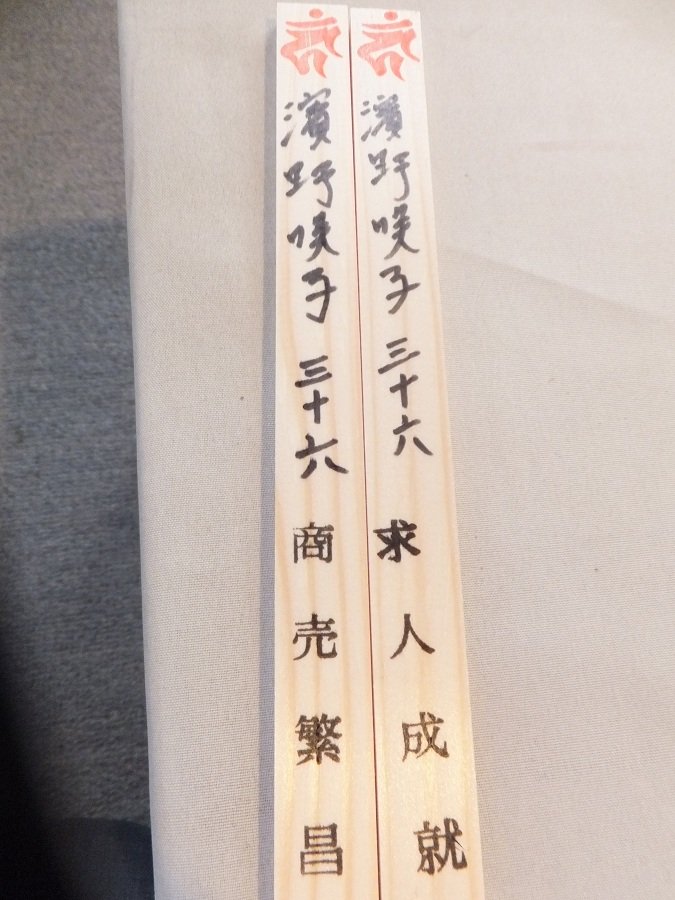 濱野咲子 三十六 求人成就
濱野咲子 三十六 商売繁昌